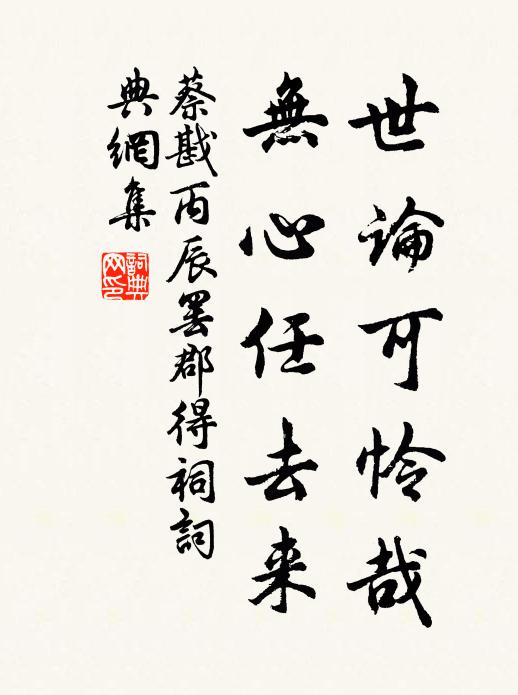 世論可怜哉
無心任去来
蔡戡丙辰罢郡得祠詞
典網集
詞典
网印